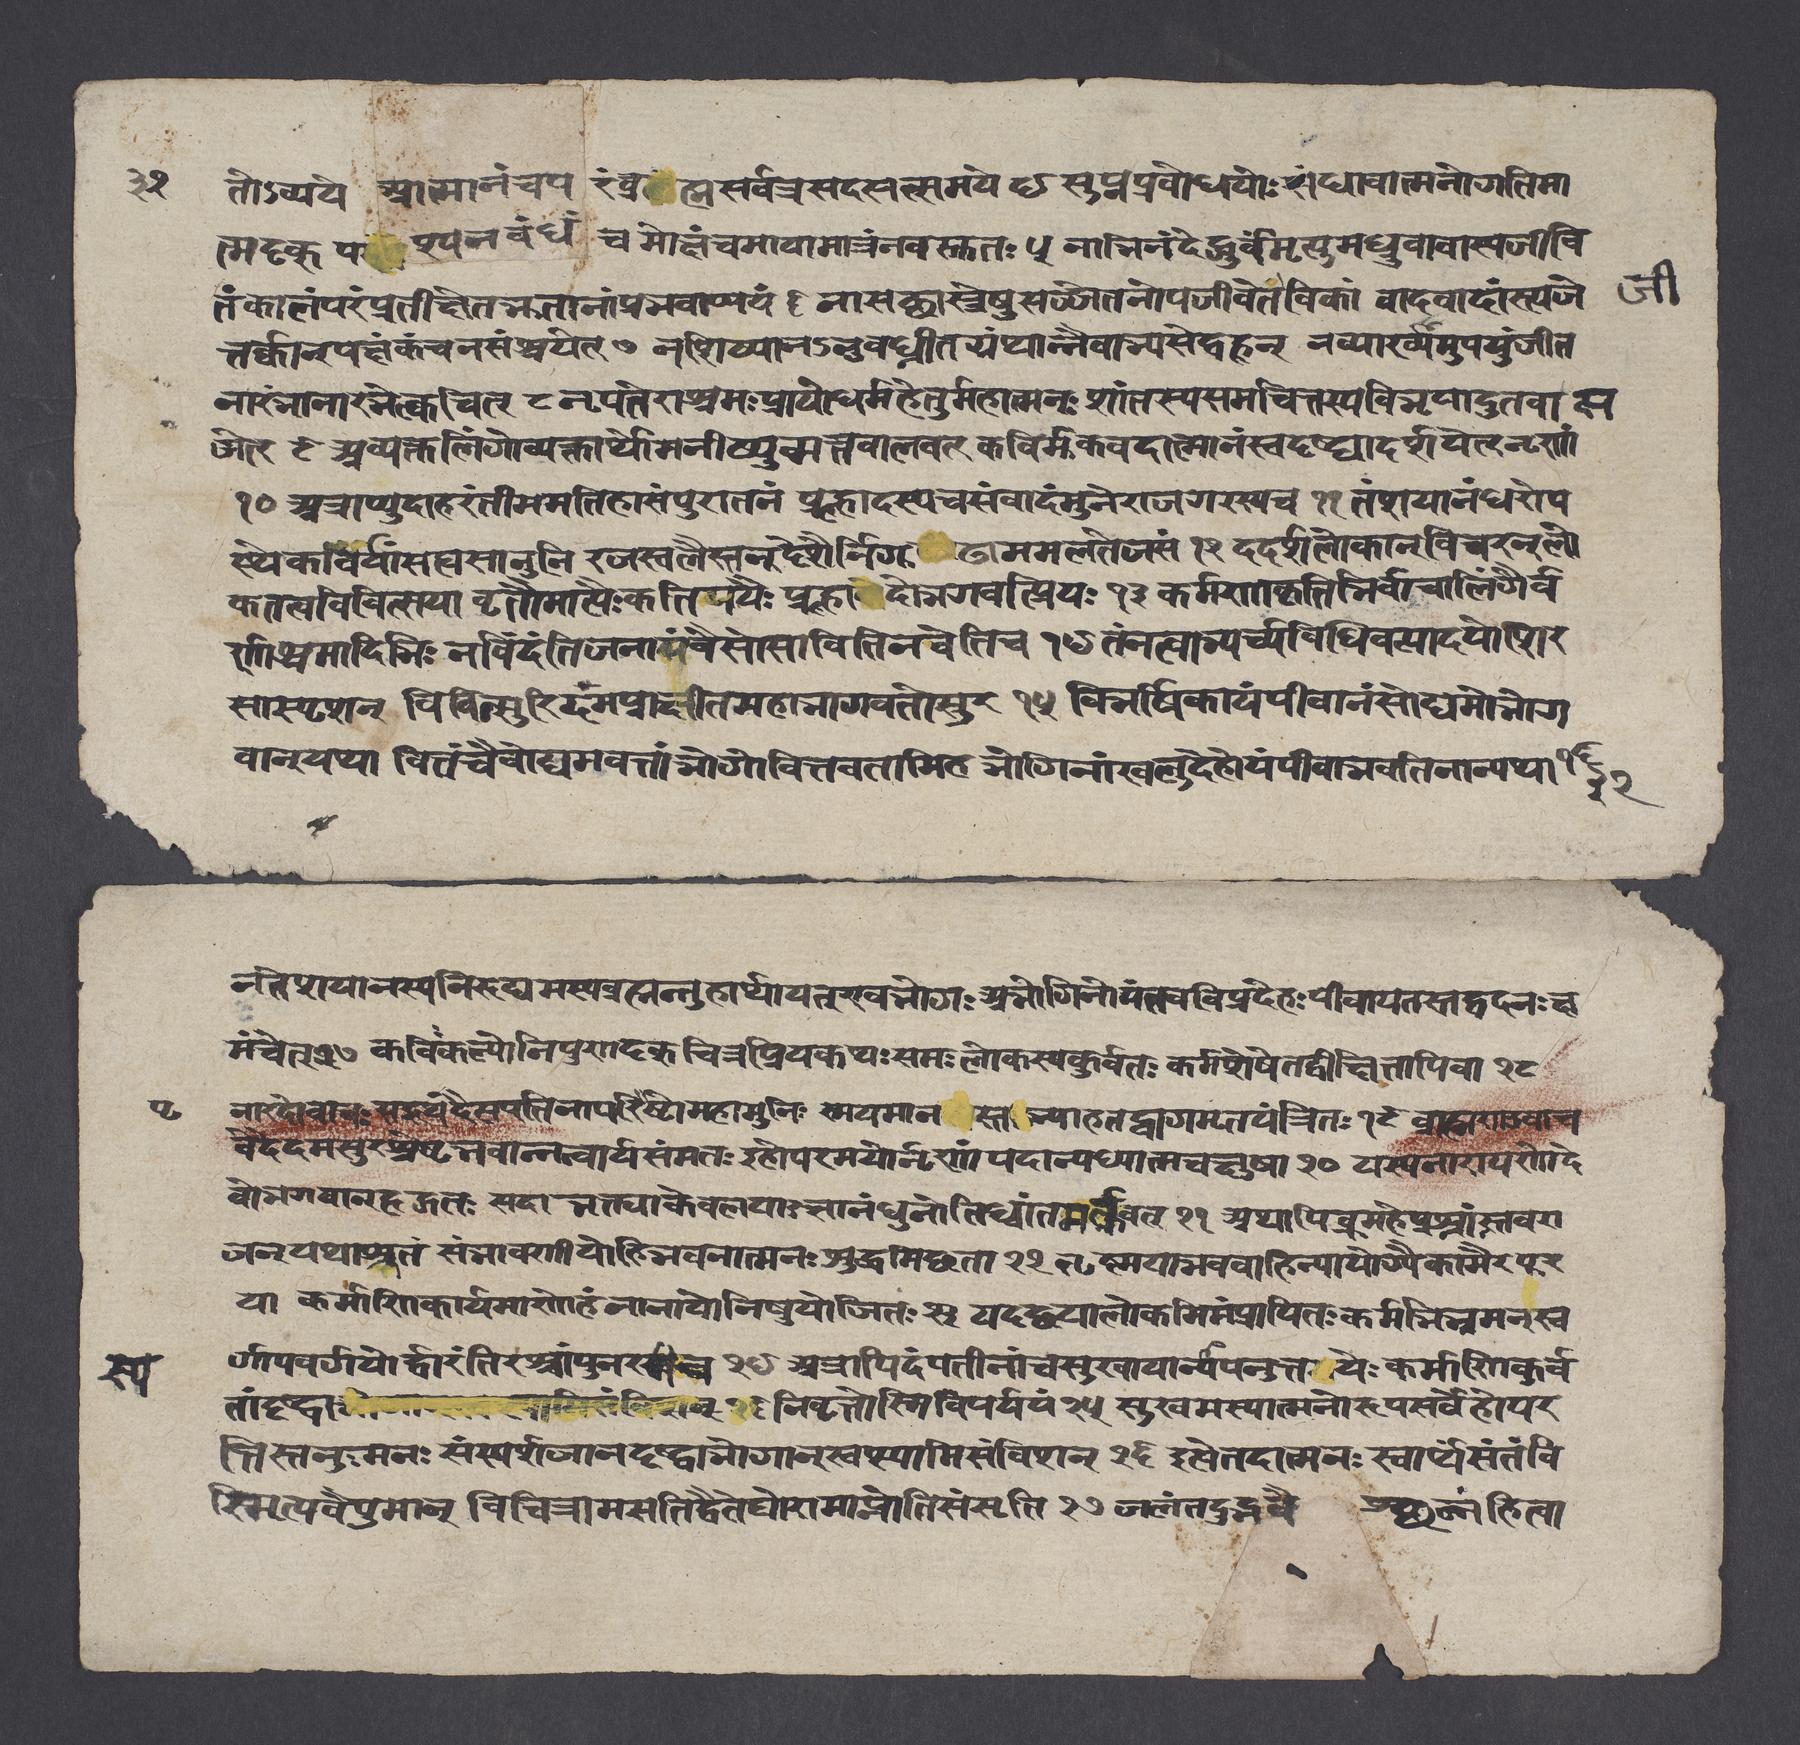 ३१ तोऽव्यये आत्मानं च परं ब्र ह्म सर्वत्र सदसत्समये ४ सुप्तप्रबोधयोः संधावात्मनो गतिमा
त्मदृक् प श्यन बंधं च मोक्षं च मायामात्रं न वस्तुतः ५ नाभिनंदेद्ध्रुवं मृत्युमध्रुवं वास्य जीवि
तं कालं परं प्रतीक्षेत भूतानां प्रभवाप्ययं ६ नासच्छास्त्रेषु सज्जेत नोपजीवेत विकां वादवादांस्त्यजे जी
त्तर्कान् पक्षं कंचन संश्रयेत् ७ न शिष्यान ऽनुबध्नीत ग्रंथान्नैवाभ्यसेद्बहून् न व्याख्यामुपयुंजीत
नारंभानारभेत्क्वचित् ८ न यतेराश्रमः प्रायो धर्महेतुर्महात्मनः शांतस्य समचित्तस्य बिभृयादुत वा त्य
जेत् ९ अव्यक्तलिंगो व्यक्तार्थो मनीष्युन्मत्तबालवत् कविर्मूकवदात्मानं स्वदृष्ट्या दर्शयेन्नृणां
१० अत्राप्युदाहरंतीममितिहासं पुरातनं प्रह्रादस्य च संवादं मुनेराजगरस्य च ११ तं शयानं धरोप
स्थे कावेर्यां सह्यसानुनि रजस्वलैस्तनूदेशैर्निगू ढाममलतेजसं १२ ददर्श लोकान् विचरन् लो
कतत्त्वविवित्सया वृतोमात्यैः कतिपयैः प्रह्रा दो भगवत्प्रियः १३ कर्मणाकृतिभिर्वाचा लिंगैर्व
र्णाश्रमादिभिः न विंदंति जना यं वै सोसाविति न वेति च १४ तं नत्वाभ्यर्च्य विधिवत्पादयोः शिर
सा स्पृशन् विवित्सुरिदमप्राक्षीत महाभागवतोसुर १५ बिभर्षि कायं पीवानं सोद्यमो भोग
वान् यथा वित्तं चैवोद्यमवत्तां भोगो वित्तवतामिह भोगिनां खलु देहोयं पीवा भवति नान्यथा १६ ३१
न ते शयानस्य निरुद्यमस्य ब्रह्मन्नुहार्थो यत एव भोगः अभोगिनोयं तव विप्र देहः पीवा यतस्तद्वद नः क्ष
मं चेत् १७ कविः कल्पो निपुणदृक् चित्रप्रियकथः समः लोकस्य कुर्वतः कर्म शेषे तद्वीक्षितापि वा १८
पृ नारदोवाच सइत्थं दैत्यपतिना परिपृष्टो महामुनिः स्मयमान स्त भ्याह तद्वागमृतयंत्रितः १९ ब्राह्मणउवाच
वेदेदमसुरश्रेष्ठ भवान्नन्वार्यसंमतः इहोपरमयोर्नृणां पदान्यध्यात्मचक्षुषा २० यस्य नारायणो दे
वो भगवान् हृद्गतः सदा भक्त्या केवलया ज्ञानं धुनोति ध्वांतमर्कवत् २१ अथापि ब्रूमहे प्रश्नांस्तव रा
जन् यथाश्रुतं संभावणीयो हि भवनात्मनः शुद्धिमिच्छता २२ तृष्णया भववाहिन्या योग्यैः कामैरपूर
या कर्माणि कार्यमाणोहं नानायोनिषु योजितः २३ यदृच्छया लोकमिमं प्रापितः कर्मभिर्भ्रमन् स्व
स्य र्गापवर्गयोर्द्वारं तिरश्चां पुनर च २४ अत्रापि दंपतीनां च सुखायान्यपनुत्त ये कर्माणि कुर्व
तां दृष्ट्वा निवृत्तोस्मि विपर्ययं २५ सुखमस्यात्मनो रूपं सर्वेहोपर
तिस्तनुः मनः संस्पर्शजान दृष्ट्वा भोगान् स्वप्स्यामि संविशन् २६ इत्येतदात्मनः स्वार्थं संतं वि
स्मित्य वै पुमान् विचित्रामसति द्वैते घोरामाप्नोति संसृति २७ जलं तदुद्भवै श्छन्नं हित्वा